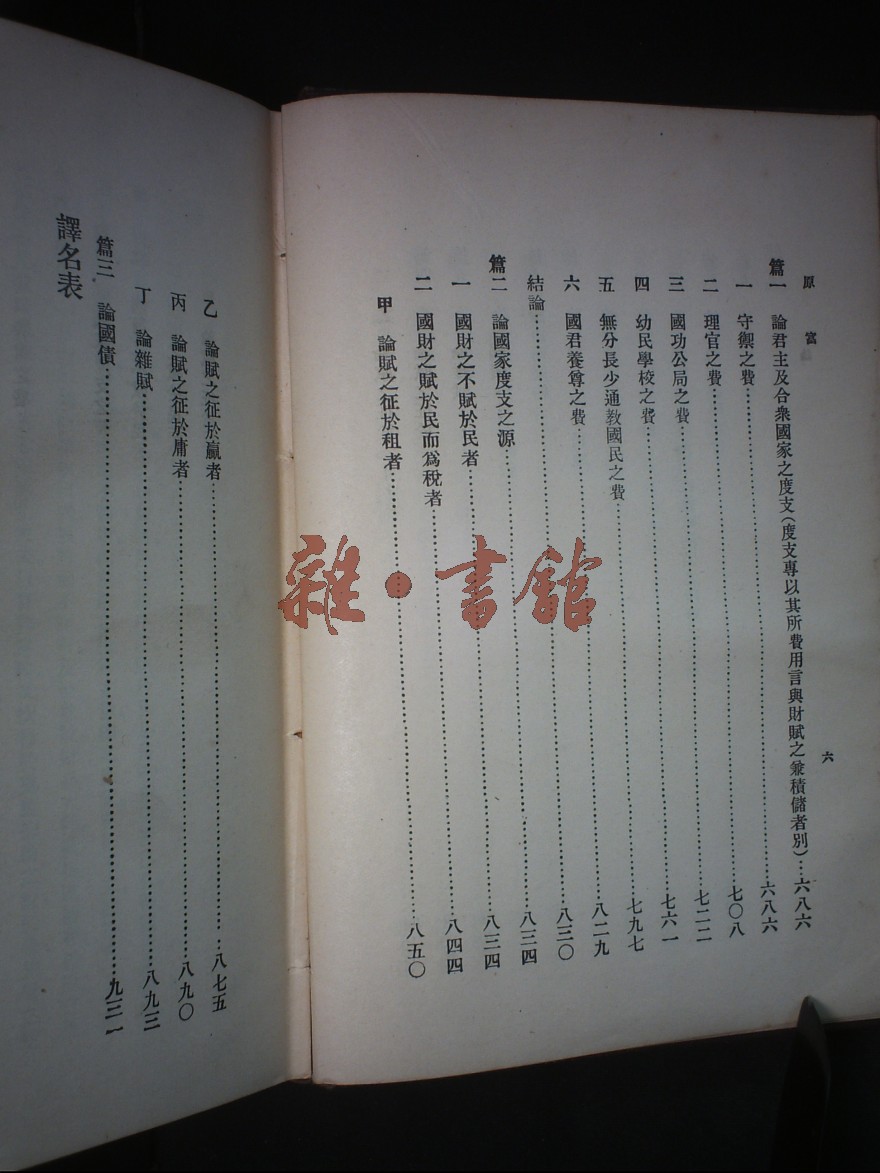 原富
六
篇一 論君主及合衆國家之度支(度支專以其所費用言與財賦之兼積儲者別)…六八六
一 守禦之費……六八六
二 理官之費……七〇八
三 國功公局之費……七二二
四 幼民學校之費……七六一
五 無分長少通教國民之費……七九七
六 國君養尊之費……八二九
結論……八三〇
篇二 論國家度支之源……八三四
一 國財之不賦於民者……八三四
二 國財之賦於民而爲稅者……八四四
甲 論賦之征於租者……八五〇
乙 論賦之征於贏者……八七五
丙 論賦之征於庸者……八九〇
丁 論雜賦……八九三
篇三 論國債……九三一
譯名表
雜·書館